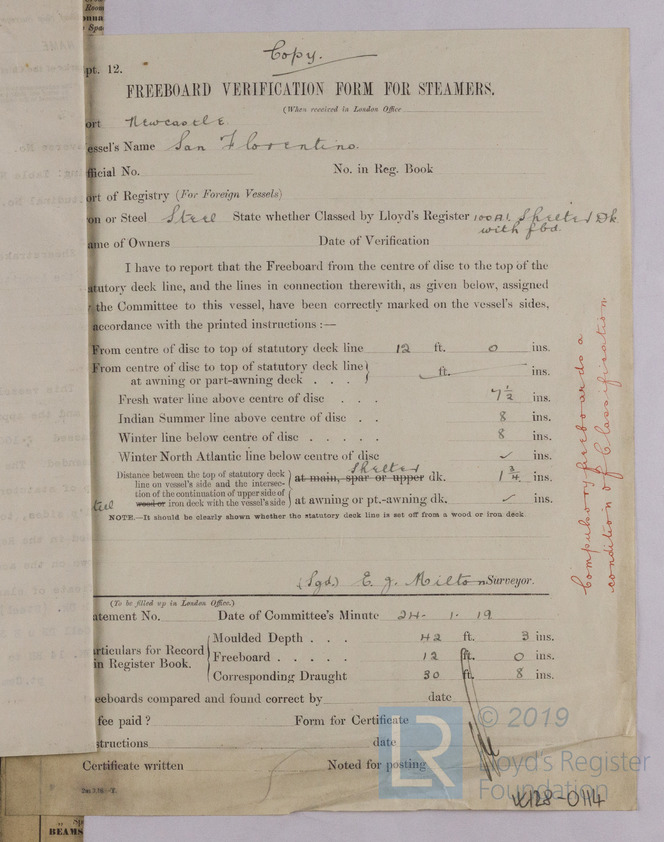 Copy.
pt. 12.
FREEBOARD VERIFICATION FORM FOR STEAMERS.
(When received in London Office
ort Newcastle.
essel's Name San Florentino.
fficial No. No. in Reg. Book
ort of Registry (For Foreign Vessels)
on or Steel Steel State whether Classed by Lloyd's Register 100A1. Shelter Dk
with fbd.
ame of Owners Date of Verification
I have to report that the Freeboard from the centre of disc to the top of the
atutory deck line, and the lines in connection therewith, as given below, assigned
the Committee to this vessel, have been correctly marked on the vessel's sides,
accordance with the printed instructions :—
From centre of disc to top of statutory deck line 12 ft. 0 ins.
From centre of disc to top of statutory deck line
at awning or part-awning deck . . . ft. ins.
Fresh water line above centre of disc . . . 7 1/2 ins.
Indian Summer line above centre of disc . . 8 ins.
Winter line below centre of disc . . . . . 8 ins.
Winter North Atlantic line below centre of disc ✓ ins.
Shelter
Distance between the top of statutory deck
line on vessel's side and the intersec- at main, spar or upper dk. 1 3/4 ins.
tion of the continuation of upper side of
wood or iron deck with the vessel's side at awning or pt.-awning dk. ✓ ins.
teel
NOTE.—It should be clearly shown whether the statutory deck line is set off from a wood or iron deck
Compulsory freeboards a
condition of Classification
(Sgd) E. J. Milton Surveyor.
(To be filled up in London Office.)
atement No. Date of Committee's Minute 24 - 1 - 19
Moulded Depth . . . 42 ft. 3 ins.
articulars for Record
in Register Book. Freeboard . . . . . 12 ft. 0 ins.
Corresponding Draught 30 ft. 8 ins.
eeboards compared and found correct by date
fee paid ? Form for Certificate
structions date
Certificate written Noted for posting
LR © 2019
Lloyd's Register
Foundation
W128-0114
BEAMS